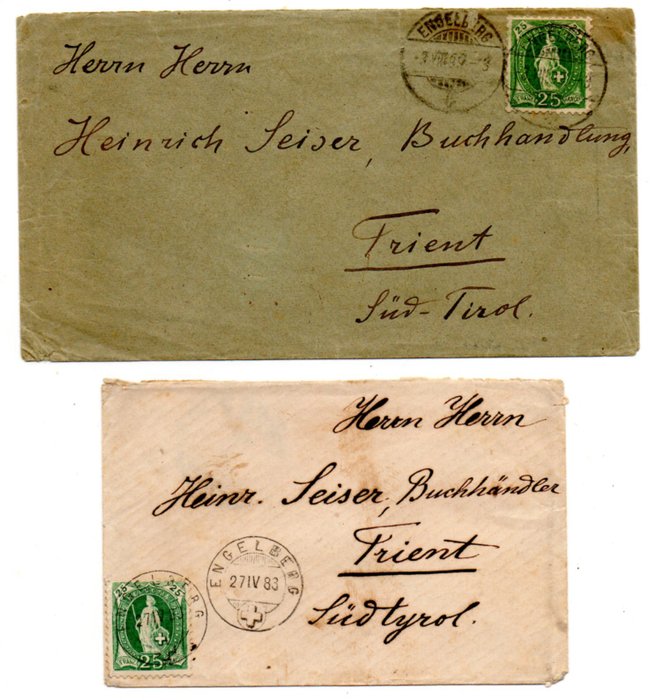 ENGELBERG
25 25
FRANCO
25
Herrn Herrn
Heinrich Seiser, Buchhandlung,
Trient
Süd-Tirol.
Herrn Herrn
Heinr. Seiser, Buchhändler
Trient
Südtyrol.
ENGELBERG
27 IV 83
25 25
ELBERG
25